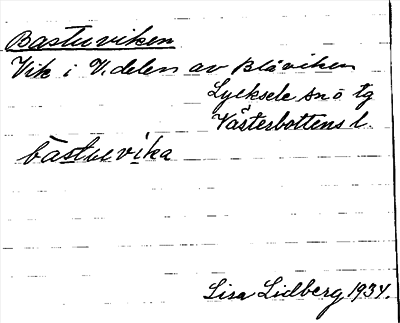 Bastuviken
Vik i V. delen av Blåviken
Lycksele snö tg
Västerbottens l.
bastuevika
Lisa Lidberg 1934.